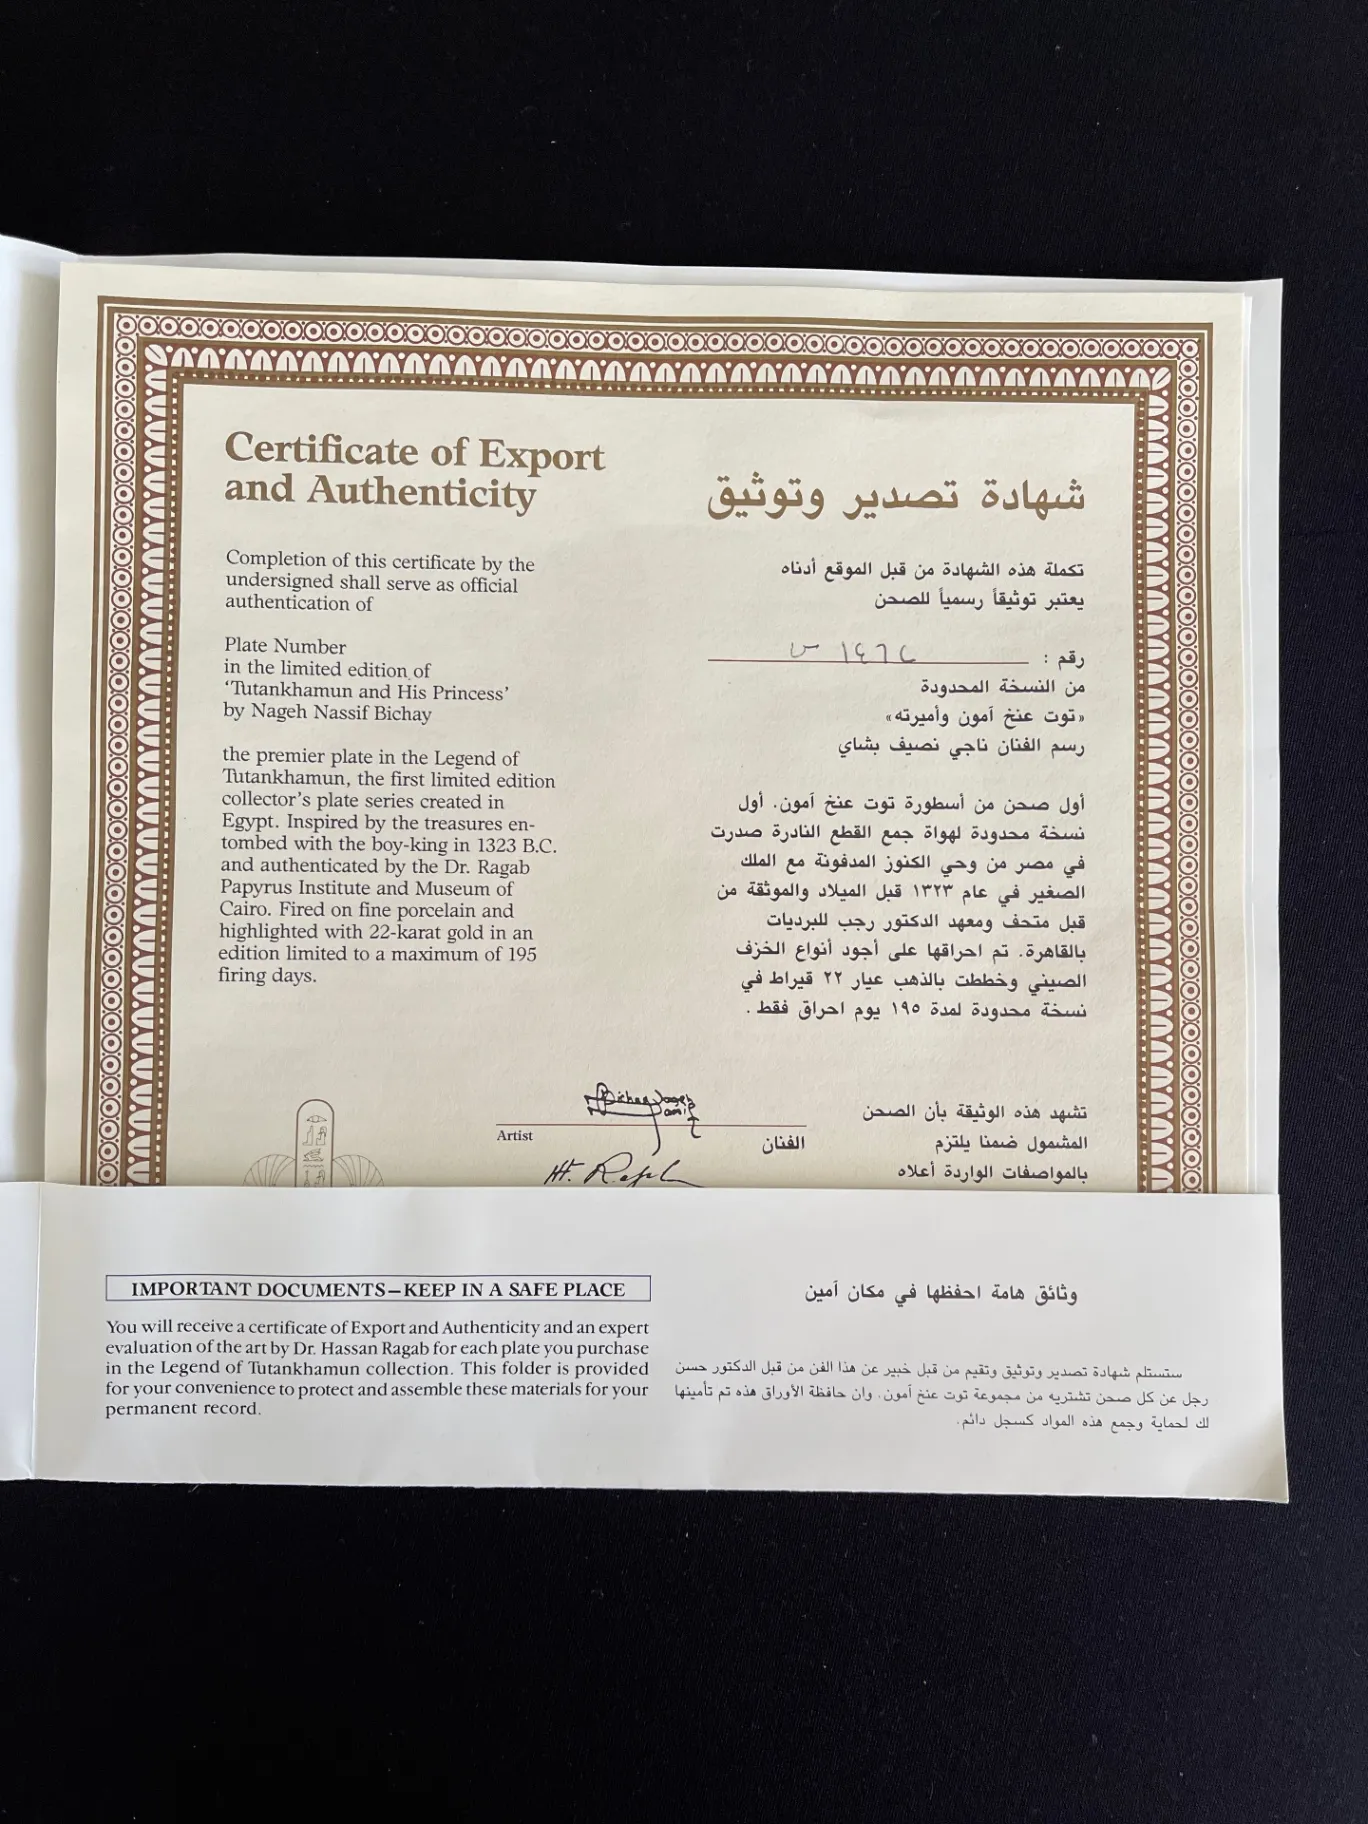 Certificate of Export
and Authenticity
Completion of this certificate by the
undersigned shall serve as official
authentication of
Plate Number
in the limited edition of
‘Tutankhamun and His Princess’
by Nageh Nassif Bichay
the premier plate in the Legend of
Tutankhamun, the first limited edition
collector’s plate series created in
Egypt. Inspired by the treasures en-
tombed with the boy-king in 1323 B.C.
and authenticated by the Dr. Ragab
Papyrus Institute and Museum of
Cairo. Fired on fine porcelain and
highlighted with 22-karat gold in an
edition limited to a maximum of 195
firing days.
شهادة تصدير وتوثيق
تكملة هذه الشهادة من قبل الموقع أدناه
يعتبر توثيقاً رسمياً للصحن
رقم :
من النسخة المحدودة
«توت عنخ آمون وأميرته»
رسم الفنان ناجي نصيف بشاي
أول صحن من أسطورة توت عنخ آمون. أول
نسخة محدودة لهواة جمع القطع النادرة صدرت
في مصر من وحي الكنوز المدفونة مع الملك
الصغير في عام ١٣٢٣ قبل الميلاد والموثقة من
قبل متحف ومعهد الدكتور رجب للبرديات
بالقاهرة. تم احراقها على أجود أنواع الخزف
الصيني وخططت بالذهب عيار ٢٢ قيراط في
نسخة محدودة لمدة ١٩٥ يوم احراق فقط .
Artist
الفنان
تشهد هذه الوثيقة بأن الصحن
المشمول ضمنا يلتزم
بالمواصفات الواردة أعلاه
IMPORTANT DOCUMENTS—KEEP IN A SAFE PLACE
You will receive a certificate of Export and Authenticity and an expert
evaluation of the art by Dr. Hassan Ragab for each plate you purchase
in the Legend of Tutankhamun collection. This folder is provided
for your convenience to protect and assemble these materials for your
permanent record.
وثائق هامة احفظها في مكان آمين
ستستلم شهادة تصدير وتوثيق وتقيم من قبل خبير عن هذا الفن من قبل الدكتور حسن
رجل عن كل صحن تشتريه من مجموعة توت عنخ آمون. وان حافظة الأوراق هذه تم تأمينها
لك لحماية وجمع هذه المواد كسجل دائم.